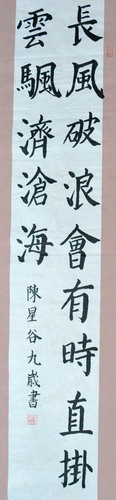 長風破浪會有時直掛
雲颿濟滄海
陳星谷九歲書